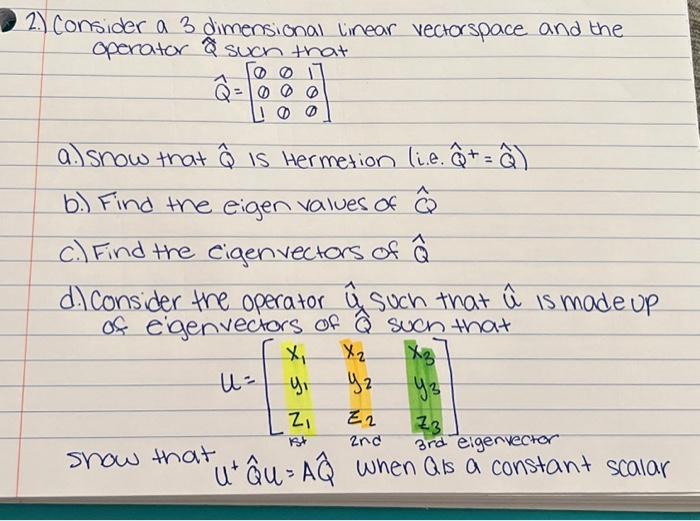 2.) Consider a 3 dimensional linear vectorspace and the
operator Q̂ such that
Q̂ = [0 0 1
0 0 0
1 0 0]
a.) show that Q̂ is Hermetion (i.e. Q̂+ = Q̂)
b.) Find the eigen values of Q̂
c.) Find the eigenvectors of Q̂
d.) Consider the operator û such that û is made up
of eigenvectors of Q̂ such that
U = [x₁ x₂ x₃
y₁ y₂ y₃
z₁ z₂ z₃]
1st 2nd 3rd eigenvector
show that U+ Q̂U = AQ̂ when Q is a constant scalar